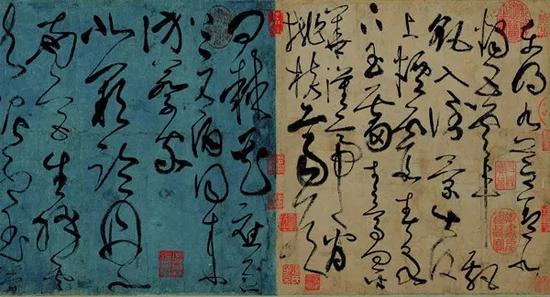 東明九芝蓋北
燭五雲車飄
飖入倒景出沒
上煙霞春泉
下玉霤青鳥向金
華漢帝看
桃核齊侯
問棘花應逐
上元酒同來
訪蔡家
北闕臨丹水
南宮生絳雲
龍泥印玉